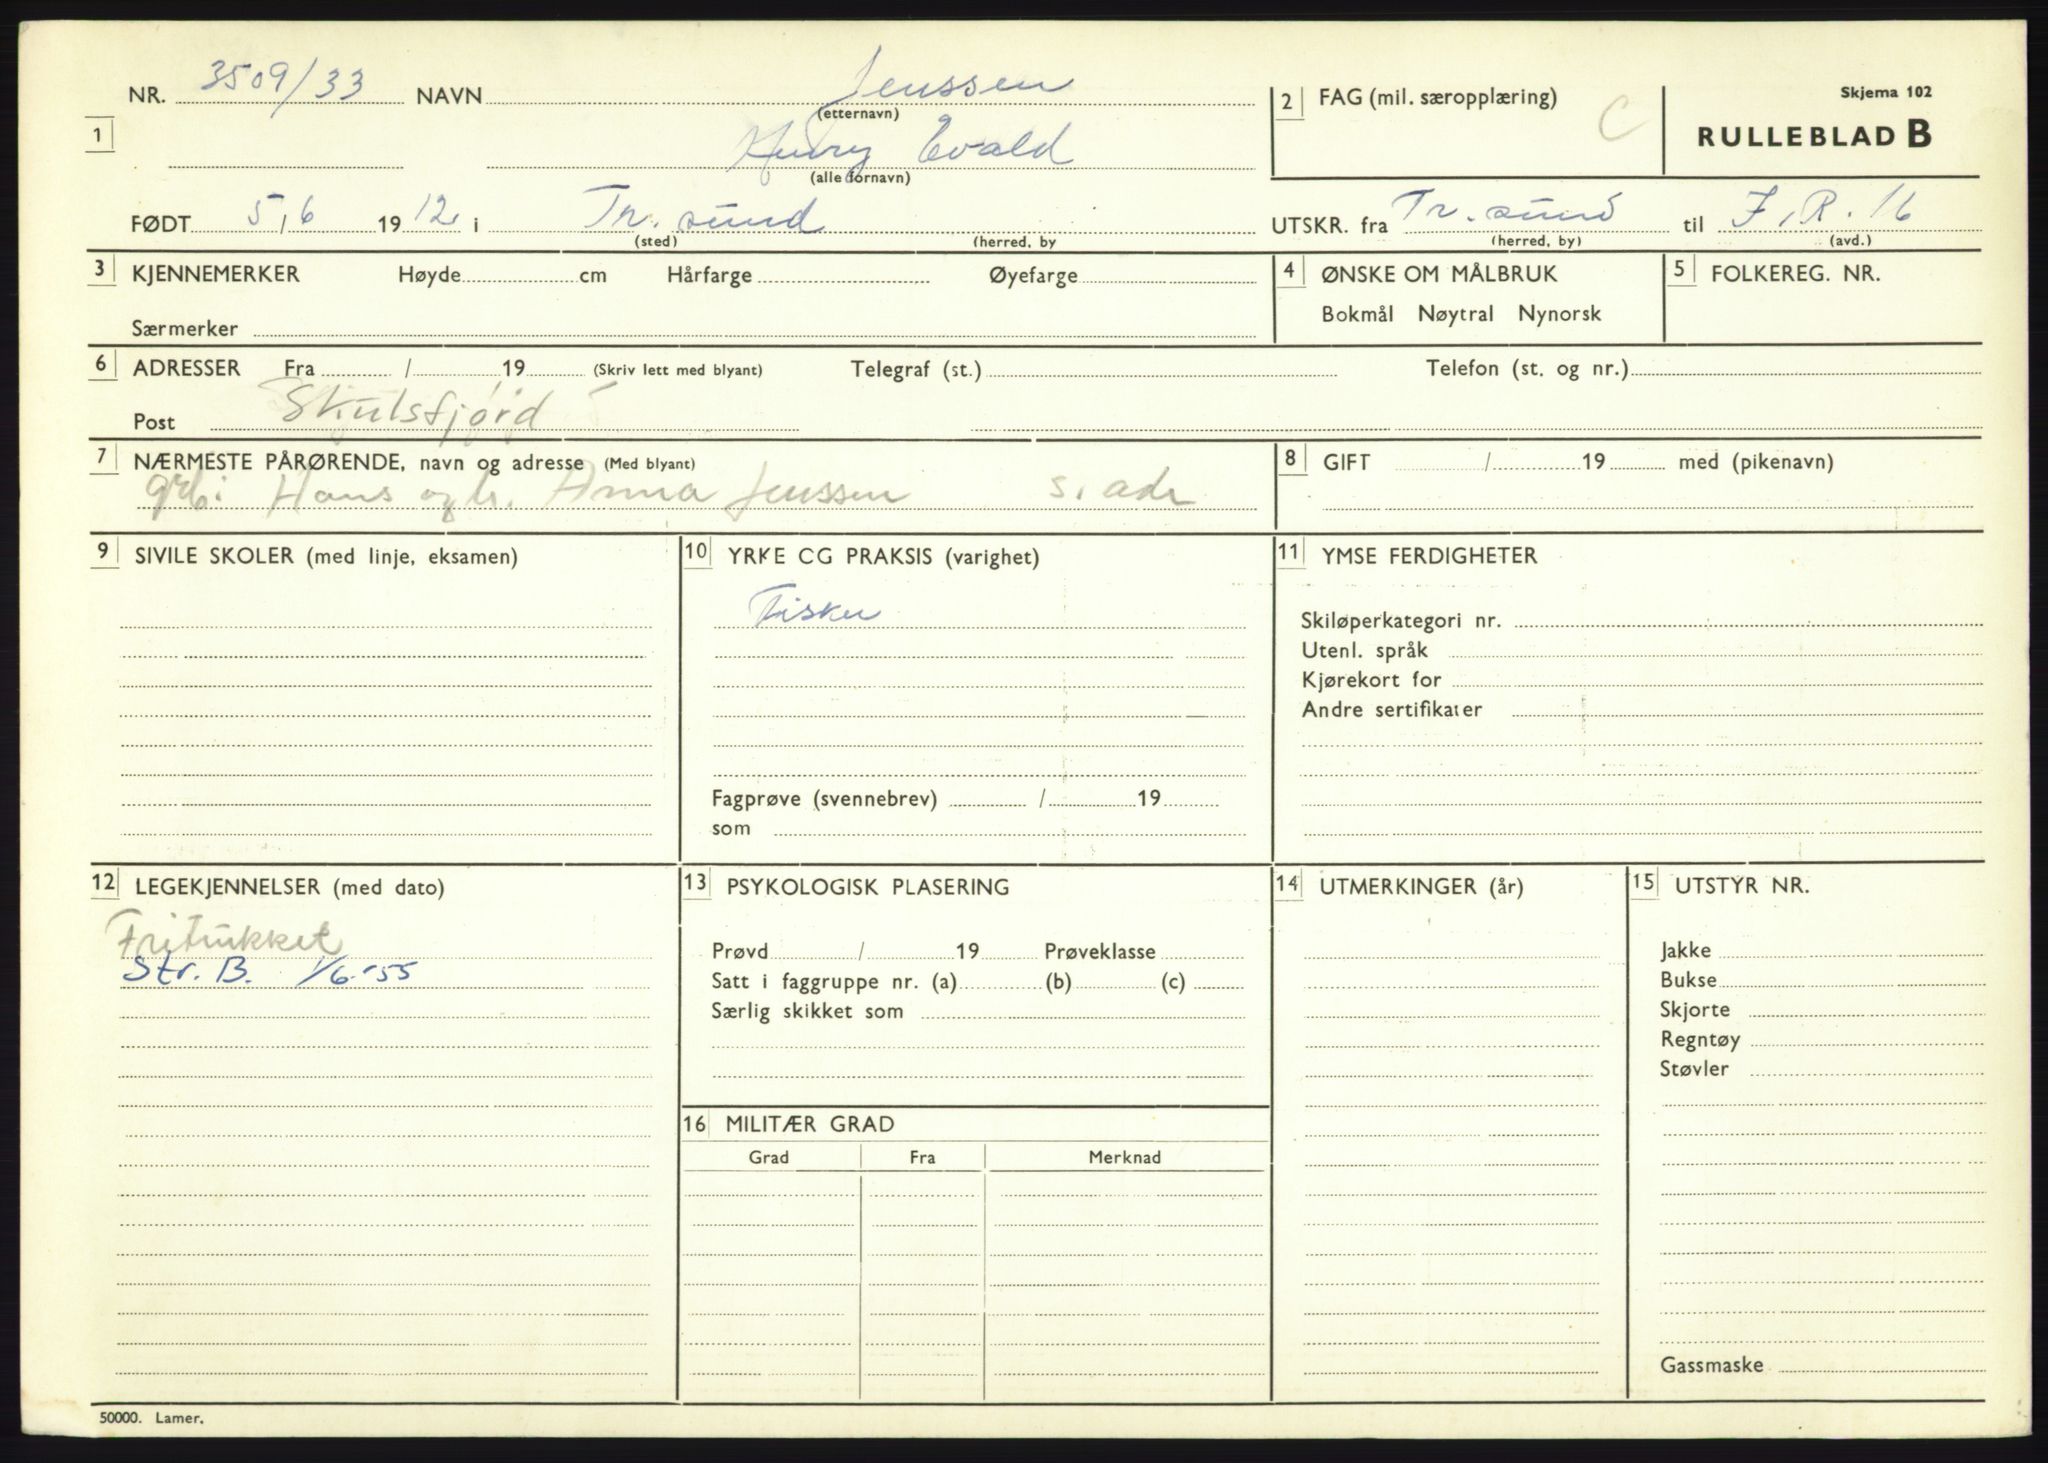 NR. 3509/33 NAVN Jenssen
(etternavn)
1 Henry Evald
(alle fornavn)
2 FAG (mil. særopplæring) C
Skjema 102
RULLEBLAD B
FØDT 5,6 1912 i Tr. sund
(sted) (herred, by
UTSKR. fra Tr. sund til I.R. 16
(herred, by) (avd.)
3 KJENNEMERKER Høyde cm Hårfarge Øyefarge
Særmerker
4 ØNSKE OM MÅLBRUK
Bokmål Nøytral Nynorsk
5 FOLKEREG. NR.
6 ADRESSER Fra / 19 (Skriv lett med blyant) Telegraf (st.) Telefon (st. og nr.)
Post Skulsfjord
7 NÆRMESTE PÅRØRENDE, navn og adresse (Med blyant)
Hans og h. Anna Jenssen s. adr
8 GIFT / 19 med (pikenavn)
9 SIVILE SKOLER (med linje, eksamen)
10 YRKE CG PRAKSIS (varighet)
Fisker
Fagprøve (svennebrev) / 19
som
11 YMSE FERDIGHETER
Skiløperkategori nr.
Utenl. språk
Kjørekort for
Andre sertifikater
12 LEGEKJENNELSER (med dato)
Fritukket
Str. B. 1/6-55
13 PSYKOLOGISK PLASERING
Prøvd / 19 Prøveklasse
Satt i faggruppe nr. (a) (b) (c)
Særlig skikket som
14 UTMERKINGER (år)
15 UTSTYR NR.
Jakke
Bukse
Skjorte
Regntøy
Støvler
Gassmaske
16 MILITÆR GRAD
Grad Fra Merknad
50000. Lamer.